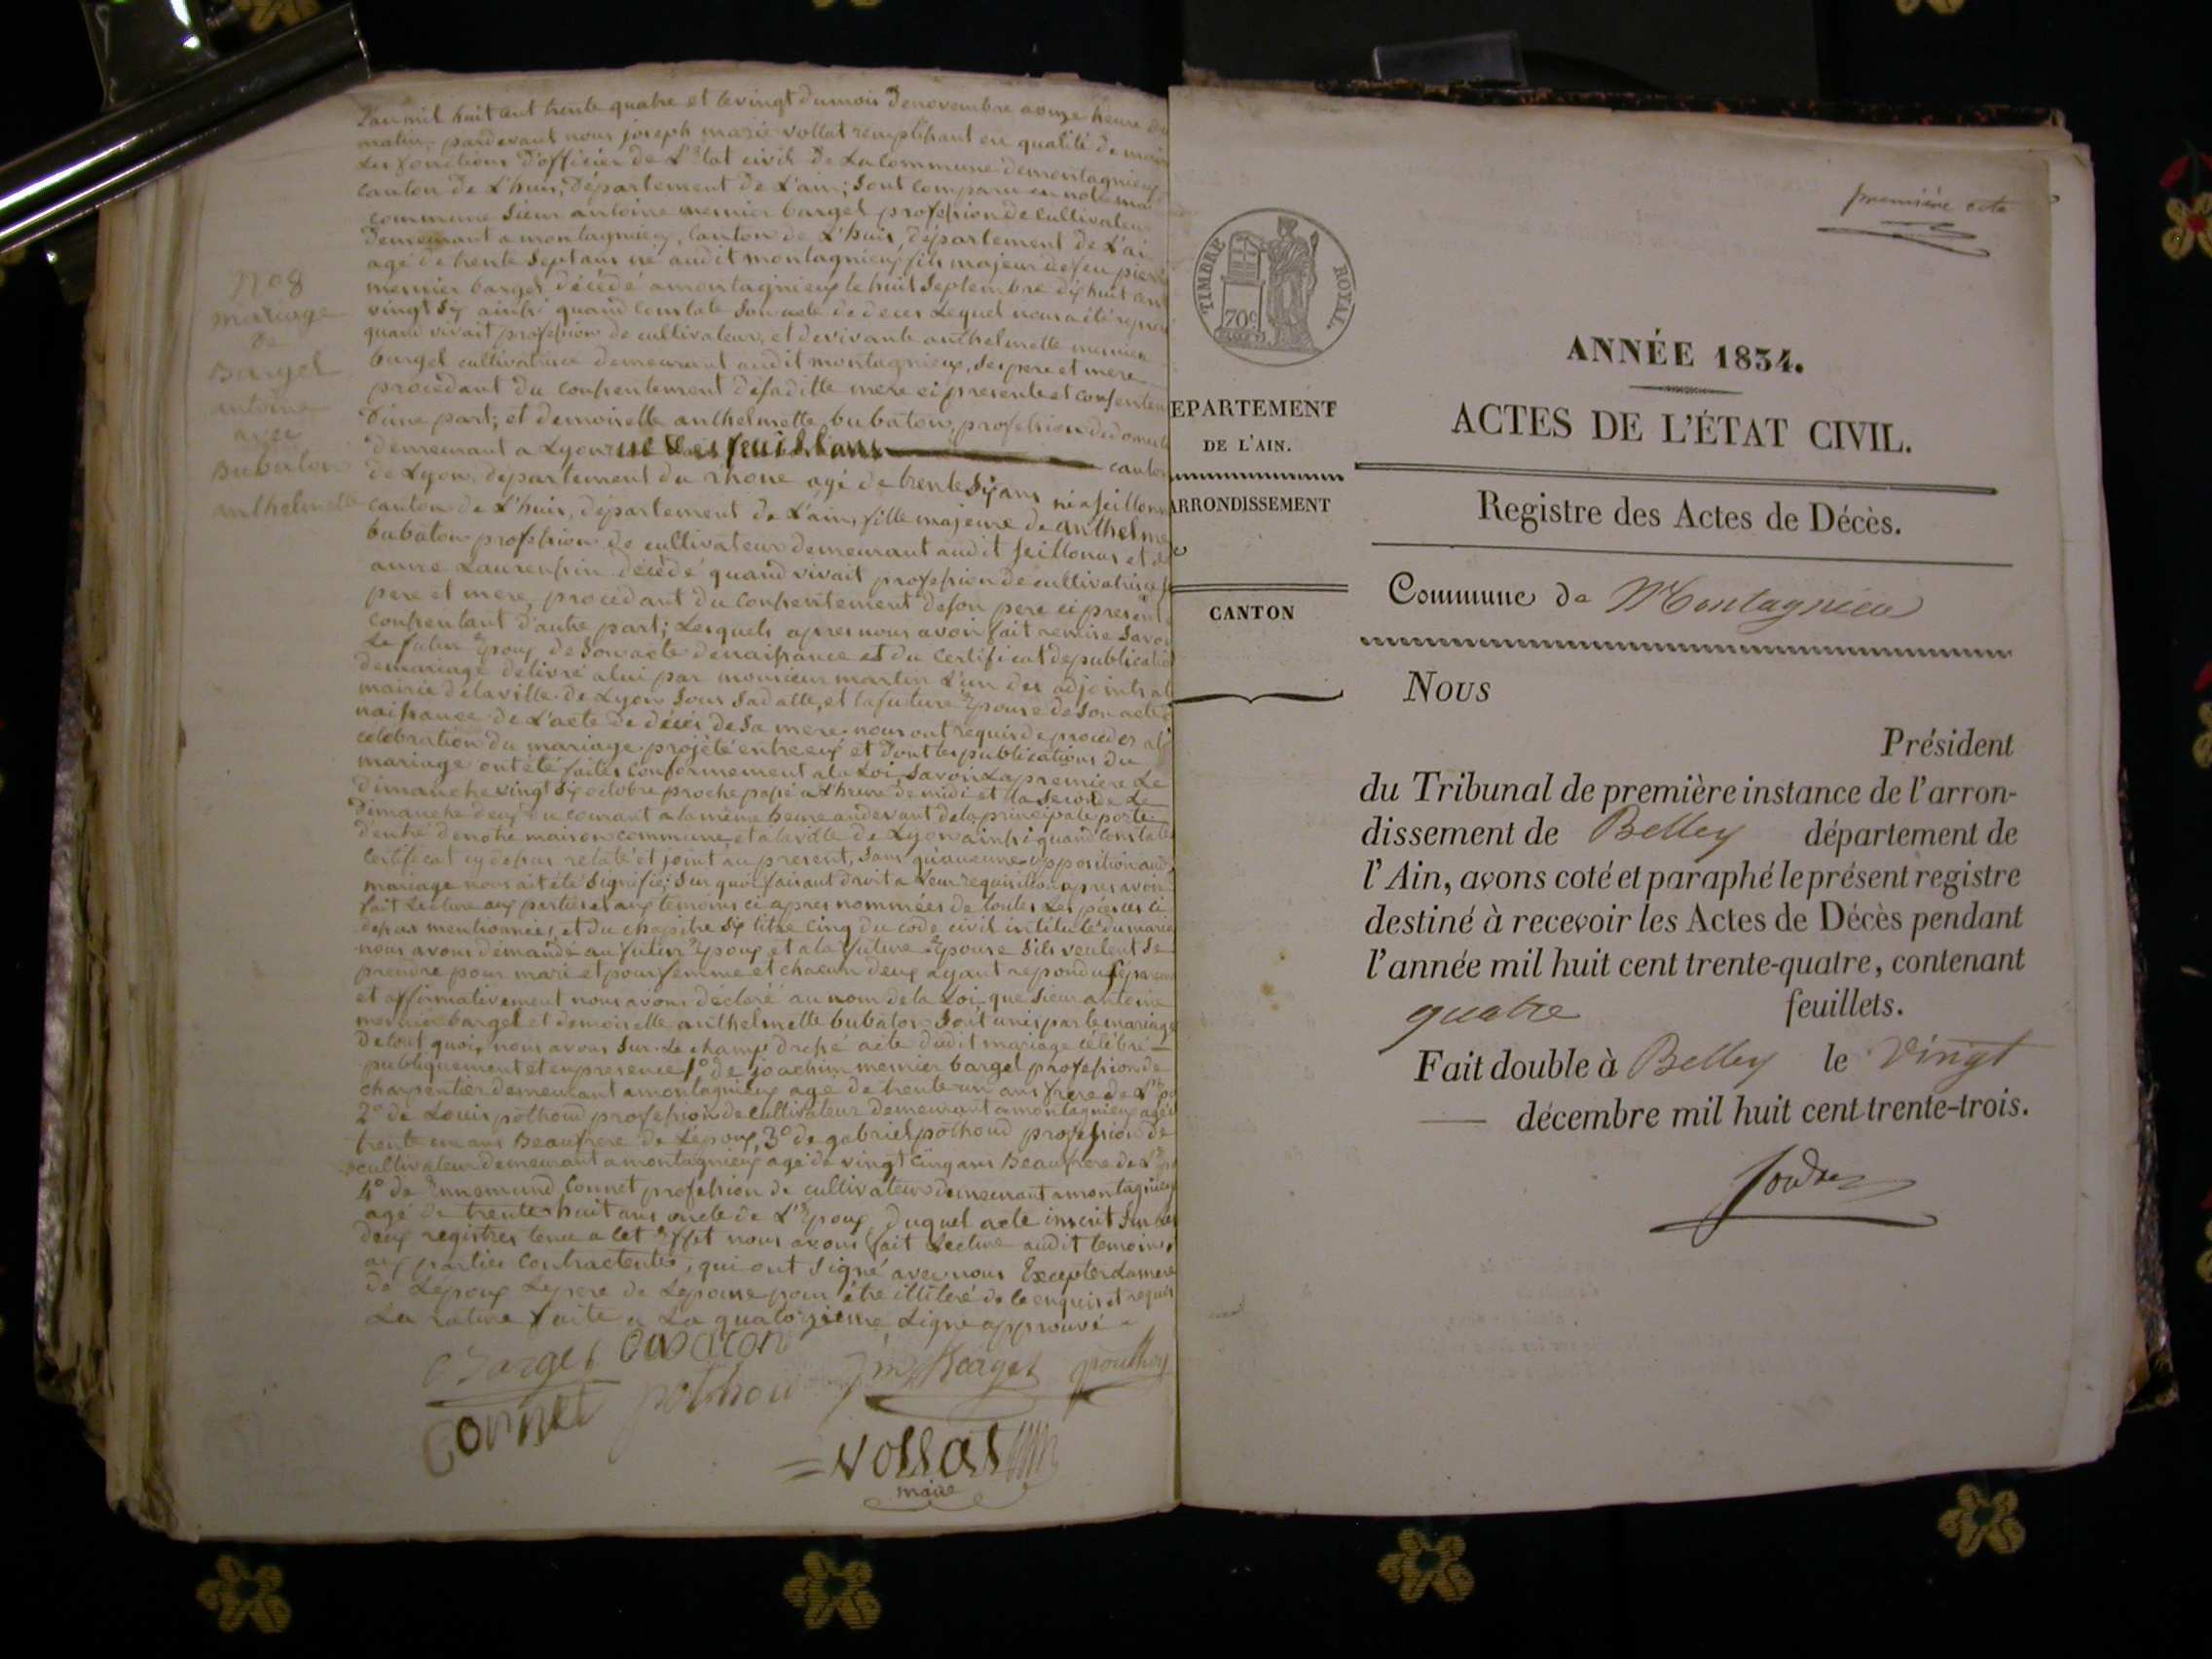 L'an mil huit cent trente quatre et le vingt du mois de novembre a onze heure du
matin, pardevant nous joseph marie vollat remplissant en qualité de maire
Les fonctions d'officier de L'Etat civil de La Commune demontagnieux
canton de L'huis, Département de L'ain; Sont comparu en notre mai
commune Sieur antoine mernier bargel profession de cultivateur
Demeurant a montagnieux, canton de L'huis, département de L'ai
agé de trente Sept ans né audit montagnieux fils majeur de feu pierre
mernier bargel décédé a montagnieux le huit Septembre dix huit cent
vingt Six ainsi quand constate Son acte de deces Lequel nous a été
quand vivait profession de cultivateur, et de vivante anthelmette mernier
bargel cultivatrice demeurant audit montagnieux, Ses pere et mere
procédant du consentement de saditte mere ci presente et consentente
D'une part; et demoiselle anthelmette bubaton, profession de domest
demeurant a Lyon rue des feuillans canton
de Lyon, département du rhone agé de trente Six ans né a Seillonn
canton de L'huis, département de L'ain, fille majeure de anthelme
bubaton profession de cultivateur demeurant audit Seillonas et de
anne Laurensin décédé quand vivait profession de cultivatrice
pere et mere, procedant du consentement de son pere ci present
consentant d'autre part; Lesquels apres nous avoir fait remise Savoir
Le futur Epoux de Son acte de naissance et du Certificat de publication
de mariage delivré a lui par monsieur martin L'un des adjoints a l
mairie de la ville de Lyon Sous Sa datte, et la future Epouse de Son acte
naissance de L'acte de décès de Sa mere nous ont requis de proceder a l
célébration du mariage projété entre eux et Dont les publications du
mariage ont été faites conformement a la Loi, Savoir La premiere Le
Dimanche vingt Six octobre proche passé a L'heure de midi et la Seconde Le
Dimanche deux du courant a la même heure au devant de la principale porte
d'entré de notre maison commune, et a la ville de Lyon ainsi quand constate
Certificat cy dessus relaté et joint au present, Sans qu'aucune opposition aud
mariage nous ait été Signifié; Sur quoi faisant droit a Leur requisition apres avoir
fait Lecture aux parties et aux temoins ci apres nommées de toutes Les pieces ci
dessus mentionnées, et du chapitre Six titre cinq du code civil intitulé du maria
nous avons démandé au futur Epoux et a la future Epouse S'ils veulent Se
prendre pour mari et pour femme et chacun deux ayant repondu
et affirmativement nous avons déclaré au nom de la Loi que Sieur antoine
mernier bargel et demoiselle anthelmette bubaton Sont unis par le mariage
De tout quoi, nous avons Sur Le champ Dressé acte dudit mariage célébré
publiquement et en presence 1° de joachim mernier bargel profession de
charpentier demeurant a montagnieux agé de trente un ans frere de L'
2° de Louis pothoud profession de cultivateur Demeurant a montagnieux agé
trente un ans Beaufrere de L'époux, 3° de gabriel pothoud profession de
cultivateur demeurant a montagnieux agé de vingt Cinq ans Beaufrere de L'
4° de Ennemund Connet profession de cultivateur demeurant a montagnieux
agé de trente huit ans oncle de L'Epoux, duquel acte inscrit Sur les
deux registres tenu a Cet Effet nous avons fait Lecture audit temoins
aux parties contractentes, qui ont Signé avec nous Excepter La mere
de L'époux Le pere de L'epouse pour être illitéré de ce enquis et requis
La rature faite a La quatorzieme Ligne approuvé
N° 8
mariage
de
Bargel
antoine
avec
Bubaton
anthelmette
Bargel bubaton
Connet pothou jm Bargel pouthoy
= vollat
maire
première cote
TIMBRE ROYAL.
70c
EPARTEMENT
DE L'AIN.
ARRONDISSEMENT
CANTON
ANNÉE 1834.
ACTES DE L'ÉTAT CIVIL.
Registre des Actes de Décès.
Commune de Montagnieu
Nous
Président
du Tribunal de première instance de l'arron-
dissement de Belley département de
l'Ain, avons coté et paraphé le présent registre
destiné à recevoir les Actes de Décès pendant
l'année mil huit cent trente-quatre, contenant
quatre feuillets.
Fait double à Belley le vingt
décembre mil huit cent trente-trois.